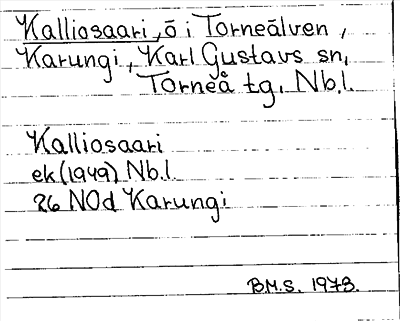 Kalliosaari, ö i Torneälven,
Karungi, Karl Gustavs sn,
Torneå tg. Nb.l.
Kalliosaari
ek (1949) Nb.l.
26 NOd Karungi
B.M.S. 1973.